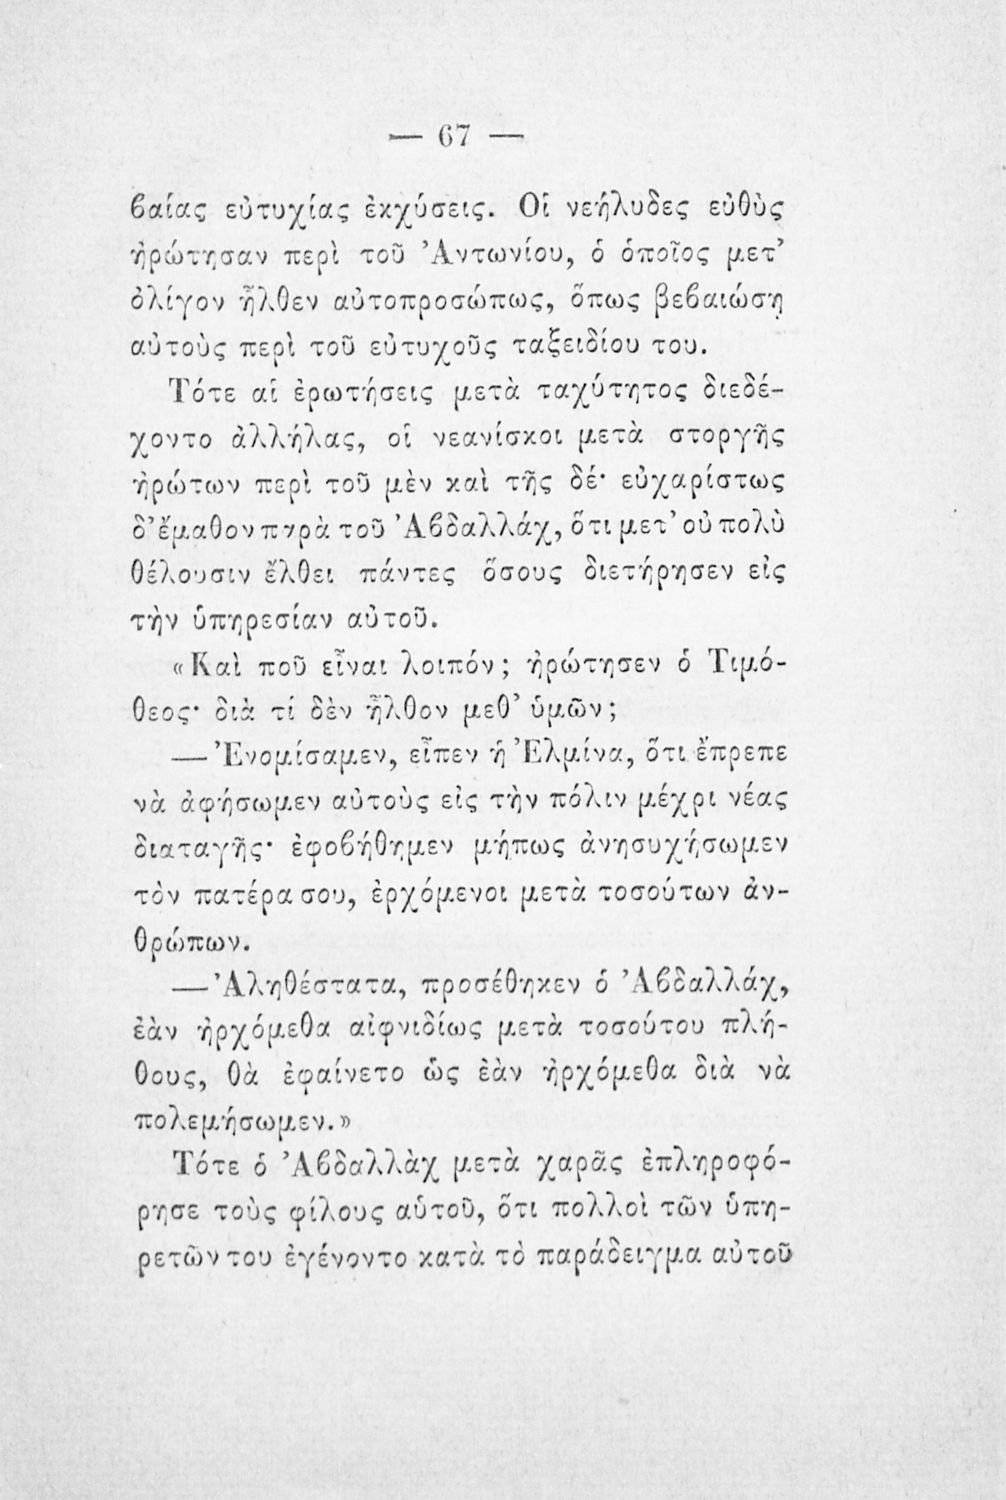 — 67 —
βαίας εὐτυχίας ἐκχύσεις. Οἱ νεήλυδες εὐθὺς
ἠρώτησαν περὶ τοῦ Ἀντωνίου, ὁ ὁποῖος μετ’
ὀλίγον ἦλθεν αὐτοπροσώπως, ὅπως βεβαιώσῃ
αὐτοὺς περὶ τοῦ εὐτυχοῦς ταξειδίου του.
Τότε αἱ ἐρωτήσεις μετὰ ταχύτητος διεδέ-
χοντο ἀλλήλας, οἱ νεανίσκοι μετὰ στοργῆς
ἠρώτων περὶ τοῦ μὲν καὶ τῆς δέ· εὐχαρίστως
δ’ ἔμαθον παρὰ τοῦ Ἀβδαλλάχ, ὅτι μετ’ οὐ πολὺ
θέλουσιν ἔλθει πάντες ὅσους διετήρησεν εἰς
τὴν ὑπηρεσίαν αὐτοῦ.
«Καὶ ποῦ εἶναι λοιπόν; ἠρώτησεν ὁ Τιμό-
θεος· διὰ τί δὲν ἦλθον μεθ’ ὑμῶν;
— Ἐνομίσαμεν, εἶπεν ἡ Ἑλμίνα, ὅτι ἔπρεπε
νὰ ἀφήσωμεν αὐτοὺς εἰς τὴν πόλιν μέχρι νέας
διαταγῆς· ἐφοβήθημεν μήπως ἀνησυχήσωμεν
τὸν πατέρα σου, ἐρχόμενοι μετὰ τοσούτων ἀν-
θρώπων.
— Ἀληθέστατα, προσέθηκεν ὁ Ἀβδαλλάχ,
ἐὰν ἠρχόμεθα αἰφνιδίως μετὰ τοσούτου πλή-
θους, θὰ ἐφαίνετο ὡς ἐὰν ἠρχόμεθα διὰ νὰ
πολεμήσωμεν.»
Τότε ὁ Ἀβδαλλὰχ μετὰ χαρᾶς ἐπληροφό-
ρησε τοὺς φίλους αὑτοῦ, ὅτι πολλοὶ τῶν ὑπη-
ρετῶν του ἐγένοντο κατὰ τὸ παράδειγμα αὐτοῦ